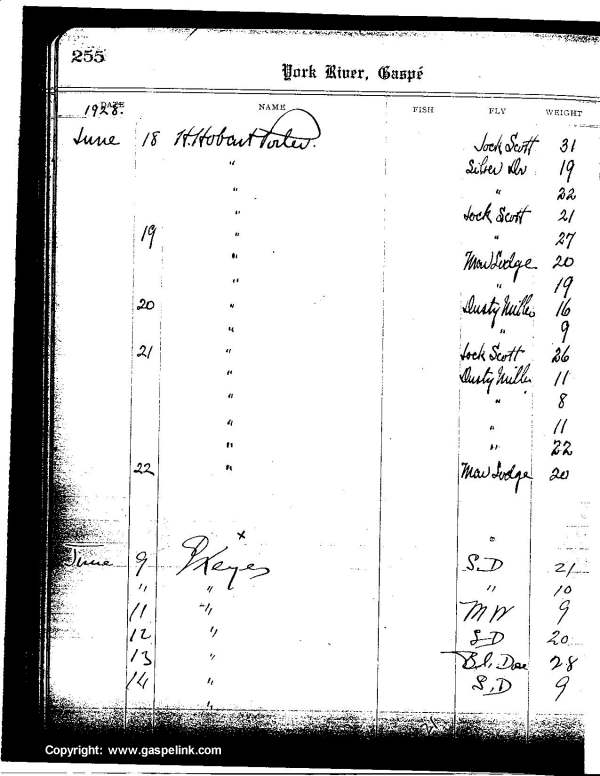 255
York River, Gaspé
DATE NAME FISH FLY WEIGHT
1928.
June 18 H. Hobart Porter. Jock Scott 31
" Silver Dr 19
" " 22
" Jock Scott 21
19 " " 27
" Mar Lodge 20
" " 19
20 " Dusty Miller 16
" " 9
21 " Jock Scott 26
" Dusty Miller 11
" " 8
" " 11
" " 22
22 " Mar Lodge 20
x "
June 9 Keyes S.D 21
" " " 10
11 " M W 9
12 " S D 20
13 " Bl. Doe 28
14 " S.D 9
"
Copyright: www.gaspelink.com